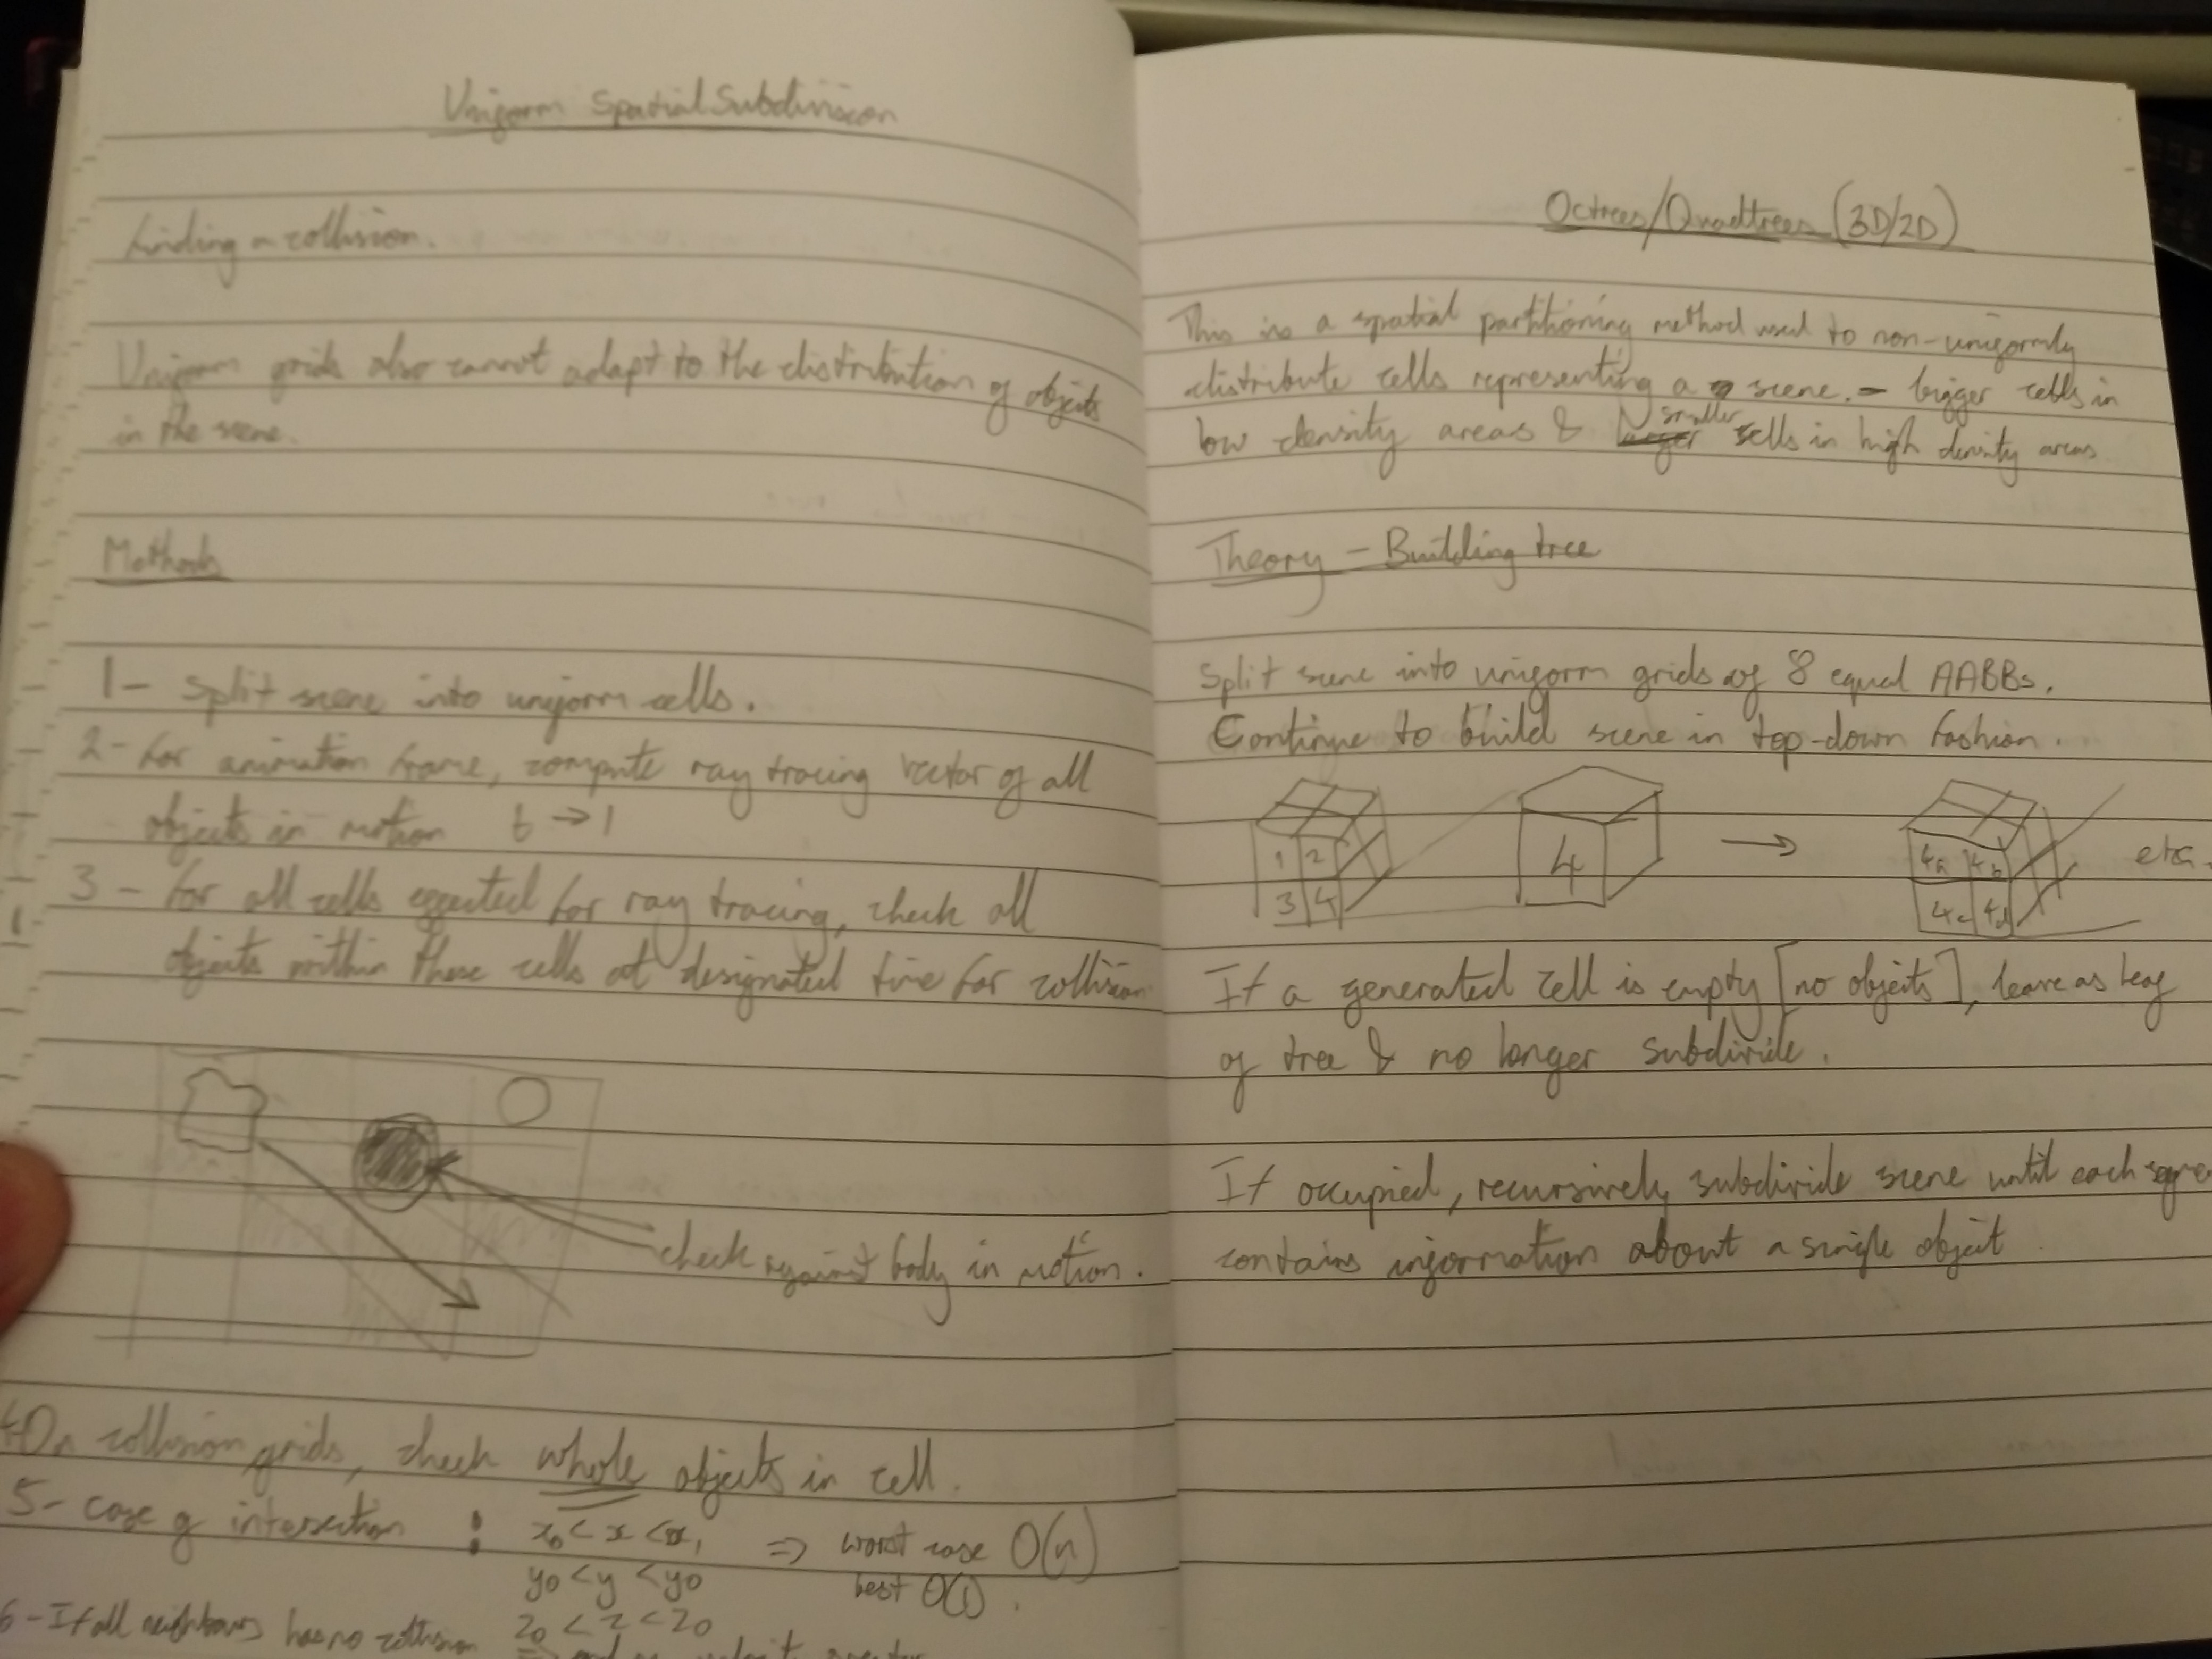 Uniform Spatial Subdivision
Finding a collision.
Uniform grids also cannot adapt to the distribution of objects
in the scene.
Methods
1- Split scene into uniform cells.
2- For animation frame, compute ray tracing vector of all
objects in motion t → 1
3 - for all cells effected for ray tracing, check all
objects within these cells at designated time for collision
check against body in motion.
4 On collision grids, check whole objects in cell.
5- case of intersection : x0 < x < x1 ⇒ worst case O(n)
y0 < y < y0 best O(1).
z0 < z < z0
6 - If all neighbours has no collision
Octrees/Quadtrees (3D/2D)
This is a spatial partitioning method used to non-uniformly
distribute cells representing a scene. - bigger cells in
low density areas & larger smaller cells in high density areas
Theory - Building tree
Split scene into uniform grids of 8 equal AABBs.
Continue to build scene in top-down fashion.
1 2
3 4
4
→
4a 4b
4c 4d
etc.
If a generated cell is empty [no objects], leave as leaf
of tree & no longer subdivide.
If occupied, recursively subdivide scene until each
contains information about a single object